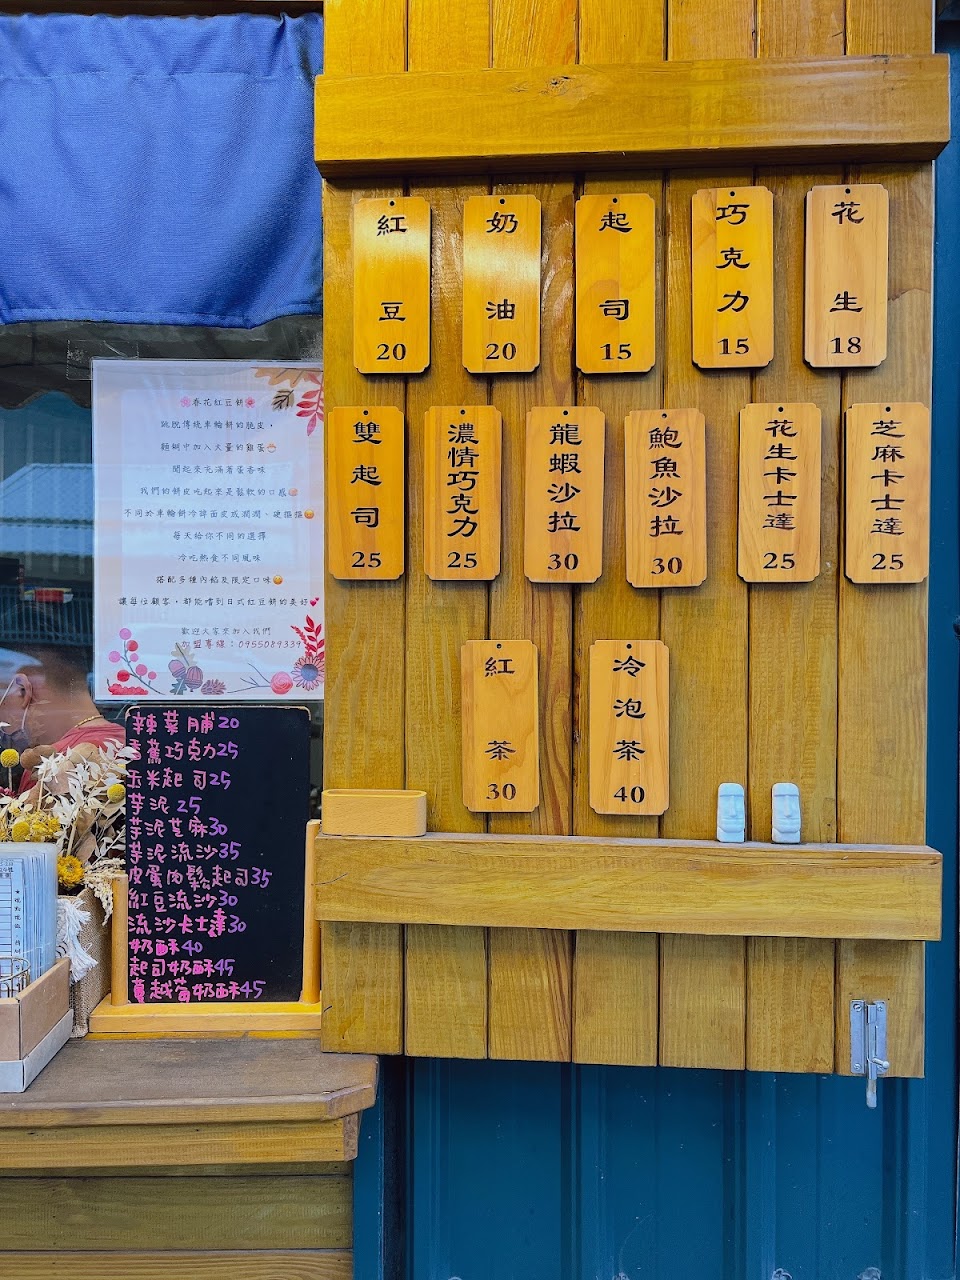 紅豆 20
奶油 20
起司 15
巧克力 15
花生 18
雙起司 25
濃情巧克力 25
龍蝦沙拉 30
鮑魚沙拉 30
花生卡士達 25
芝麻卡士達 25
紅茶 30
冷泡茶 40
春花紅豆餅
跳脫傳統車輪餅的脆皮，
麵糊中加入大量的雞蛋
聞起來充滿著蛋香味
我們的餅皮吃起來是鬆軟的口感
不同於車輪餅冷掉面皮成潤潤、硬摳摳
每天給你不同的選擇
冷吃熱食不同風味
搭配多種內餡及限定口味
讓每位顧客，都能嚐到日式紅豆餅的美好
歡迎大家來加入我們
加盟專線：0955089339
辣菜脯20
香蕉巧克力25
玉米起司25
芋泥 25
芋泥芝麻30
芋泥流沙35
皮蛋肉鬆起司35
紅豆流沙30
流沙卡士達30
奶酥40
起司奶酥45
蔓越莓奶酥45